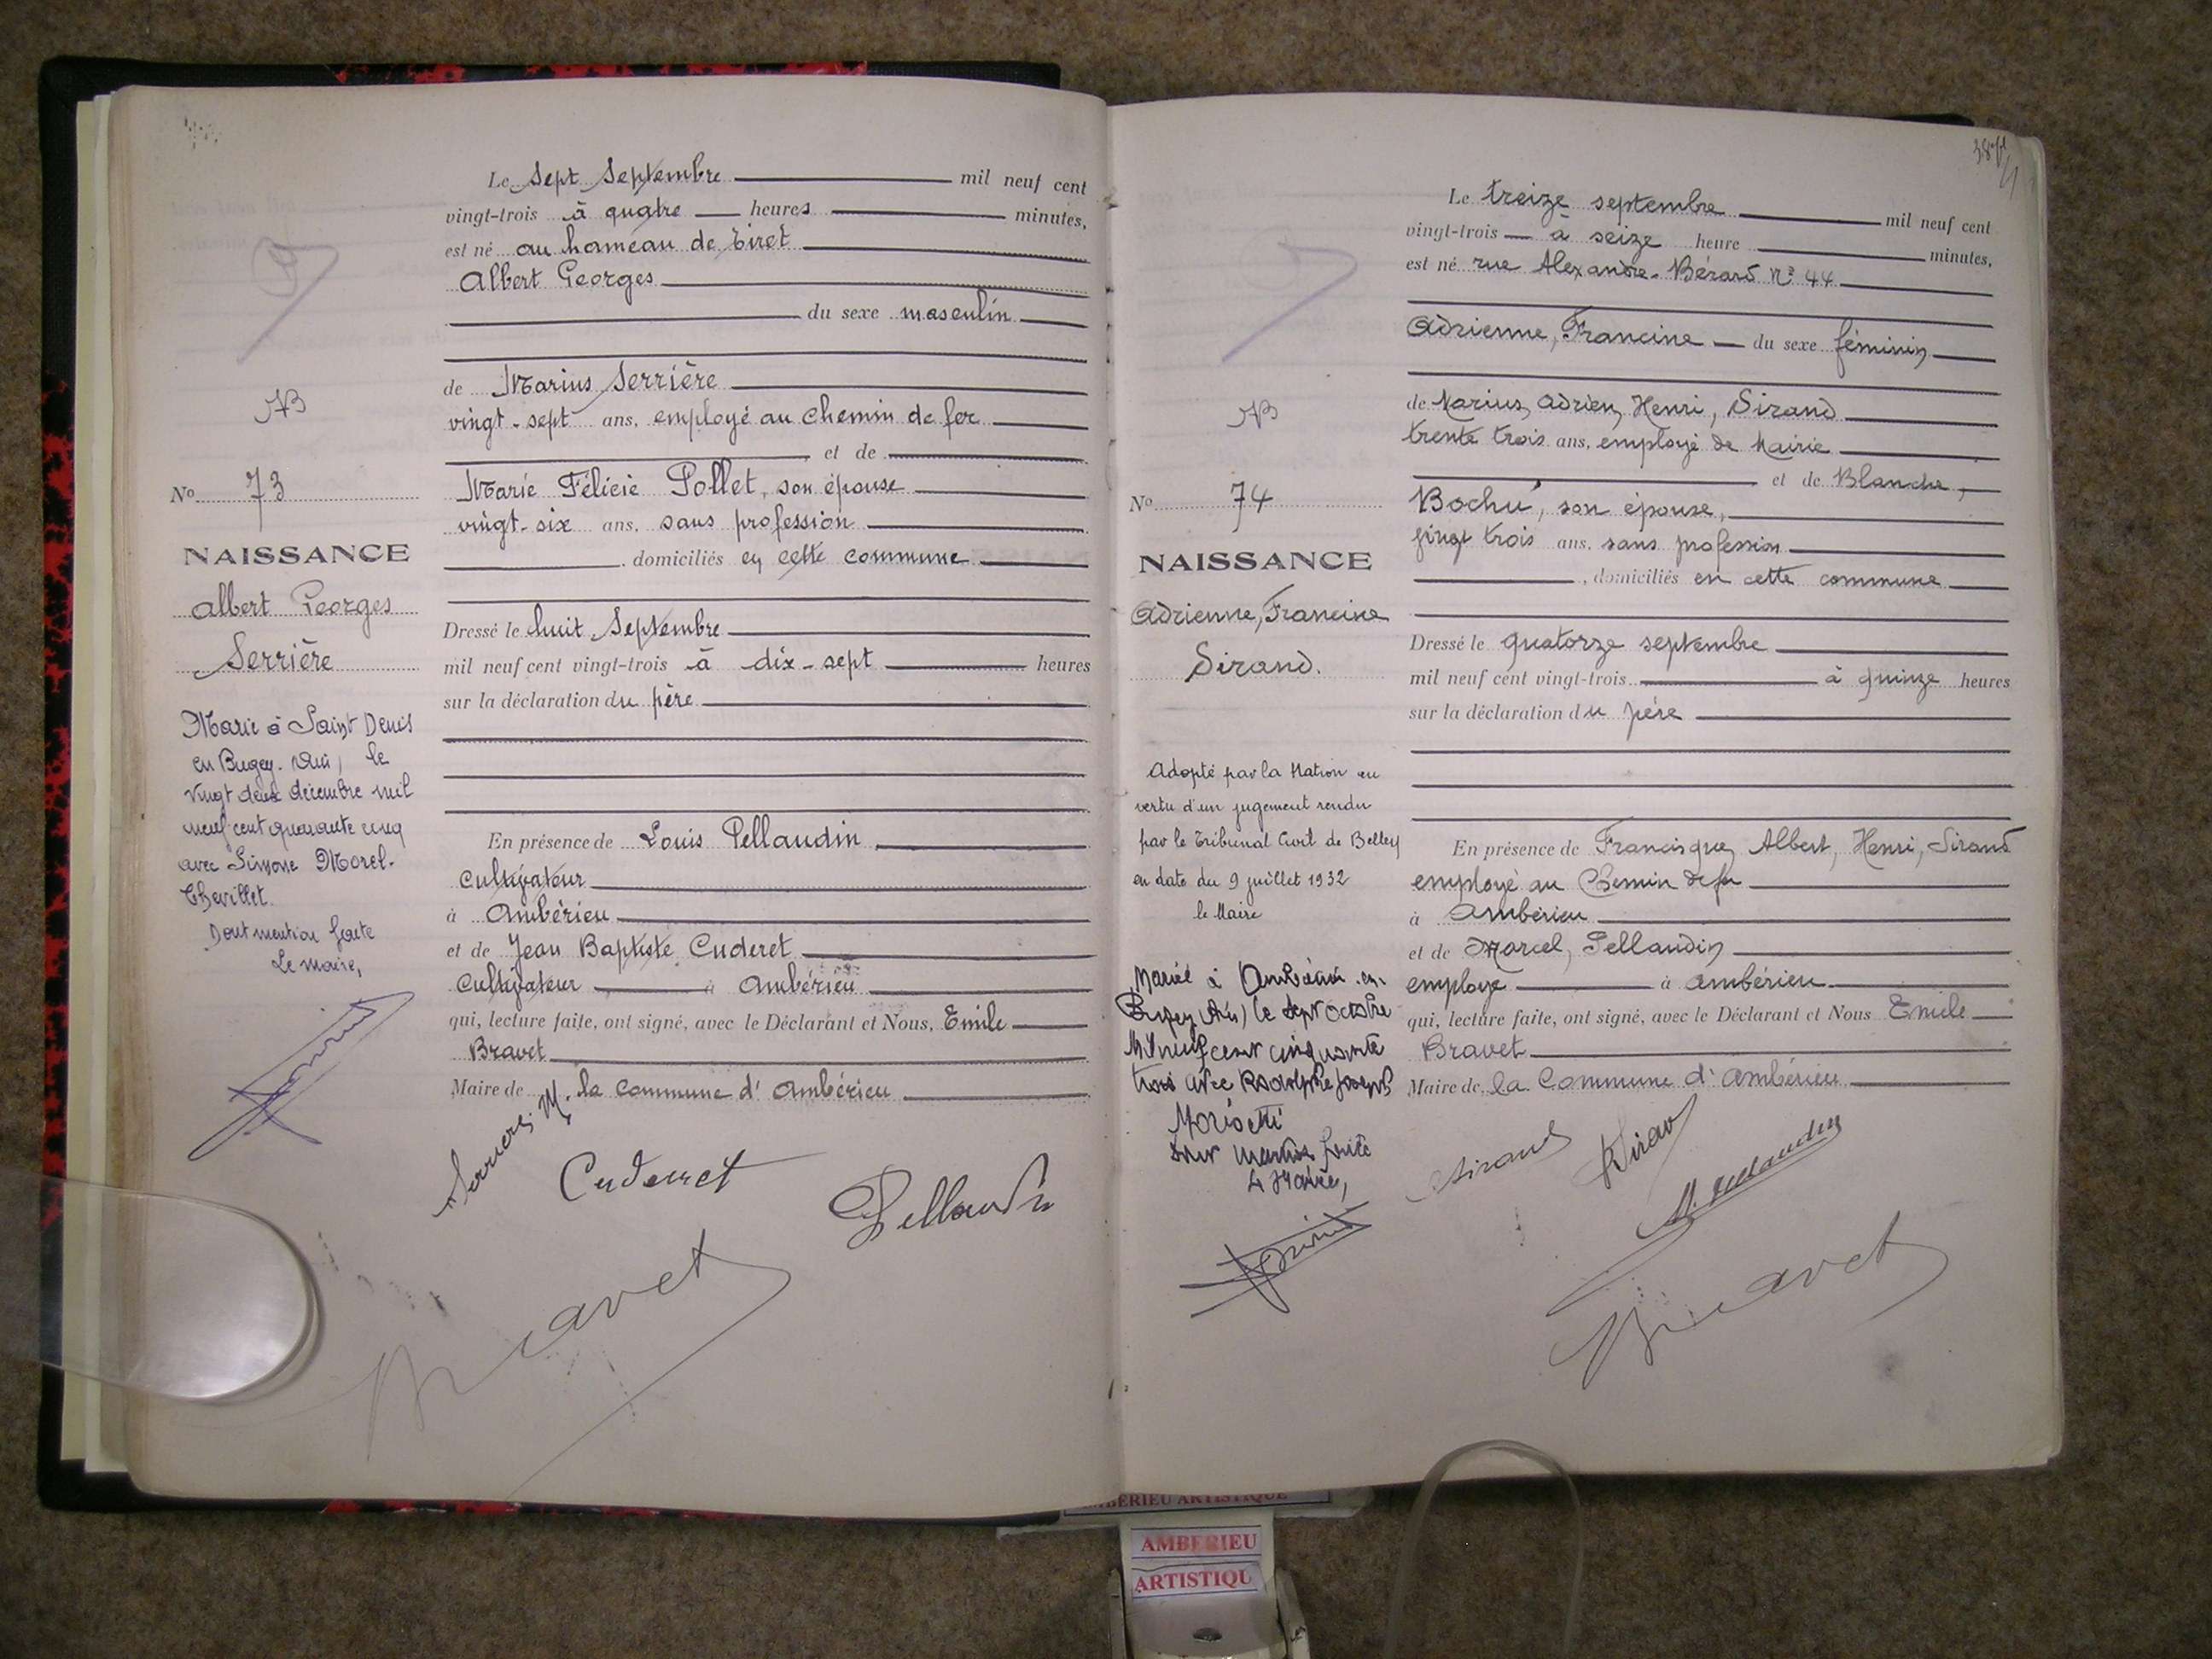 Le sept Septembre mil neuf cent
vingt-trois à quatre heures minutes,
est né au hameau de Tiret
Albert Georges
du sexe masculin
de Marius Serrière
vingt-sept ans, employé au chemin de fer
et de
Marie Félicie Pollet, son épouse
vingt-six ans, sans profession
, domiciliés en cette commune
Dressé le huit Septembre
mil neuf cent vingt-trois à dix-sept heures
sur la déclaration du père
En présence de Louis Pellaudin
cultivateur
à Ambérieu
et de Jean Baptiste Cuderet
cultivateur à Ambérieu
qui, lecture faite, ont signé, avec le Déclarant et Nous, Emile
Bravet
Maire de la commune d'Ambérieu
No 73
NAISSANCE
Albert Georges
Serrière
Marié à Saint Denis
en Bugey. Ain, le
vingt deux décembre mil
neuf cent quarante cinq
avec Simone Morel-
Chevillet.
Dont mention faite
Le maire,
Cuderet
Pellaudin
Bravet
Le treize septembre mil neuf cent
vingt-trois à seize heure minutes,
est né rue Alexandre-Bérard No 44
Adrienne, Francine du sexe féminin
de Marius, Adrien, Henri, Sirand
trente trois ans, employé de Mairie
et de Blanche,
Bochu, son épouse,
vingt trois ans, sans profession
, domiciliés en cette commune
Dressé le quatorze septembre
mil neuf cent vingt-trois à quinze heures
sur la déclaration du père
En présence de Francisque, Albert, Henri, Sirand
employé au Chemin de fer
à Ambérieu
et de Marcel, Pellaudin
employé à Ambérieu
qui, lecture faite, ont signé, avec le Déclarant et Nous Emile
Bravet
Maire de la Commune d'Ambérieu
No 74
NAISSANCE
Adrienne, Francine
Sirand.
Adopté par la Nation en
vertu d'un jugement rendu
par le Tribunal Civil de Belley
en date du 9 juillet 1932
le Maire
Marié à Ambérieu en
Bugey (Ain) le sept octobre
Mil neuf cent cinquante
trois avec Rodolphe Joseph
Morisetti
Dont mention faite
Le Maire,
Sirand
M. Pellaudin
Bravet
AMBERIEU ARTISTIQUE
AMBERIEU
ARTISTIQU